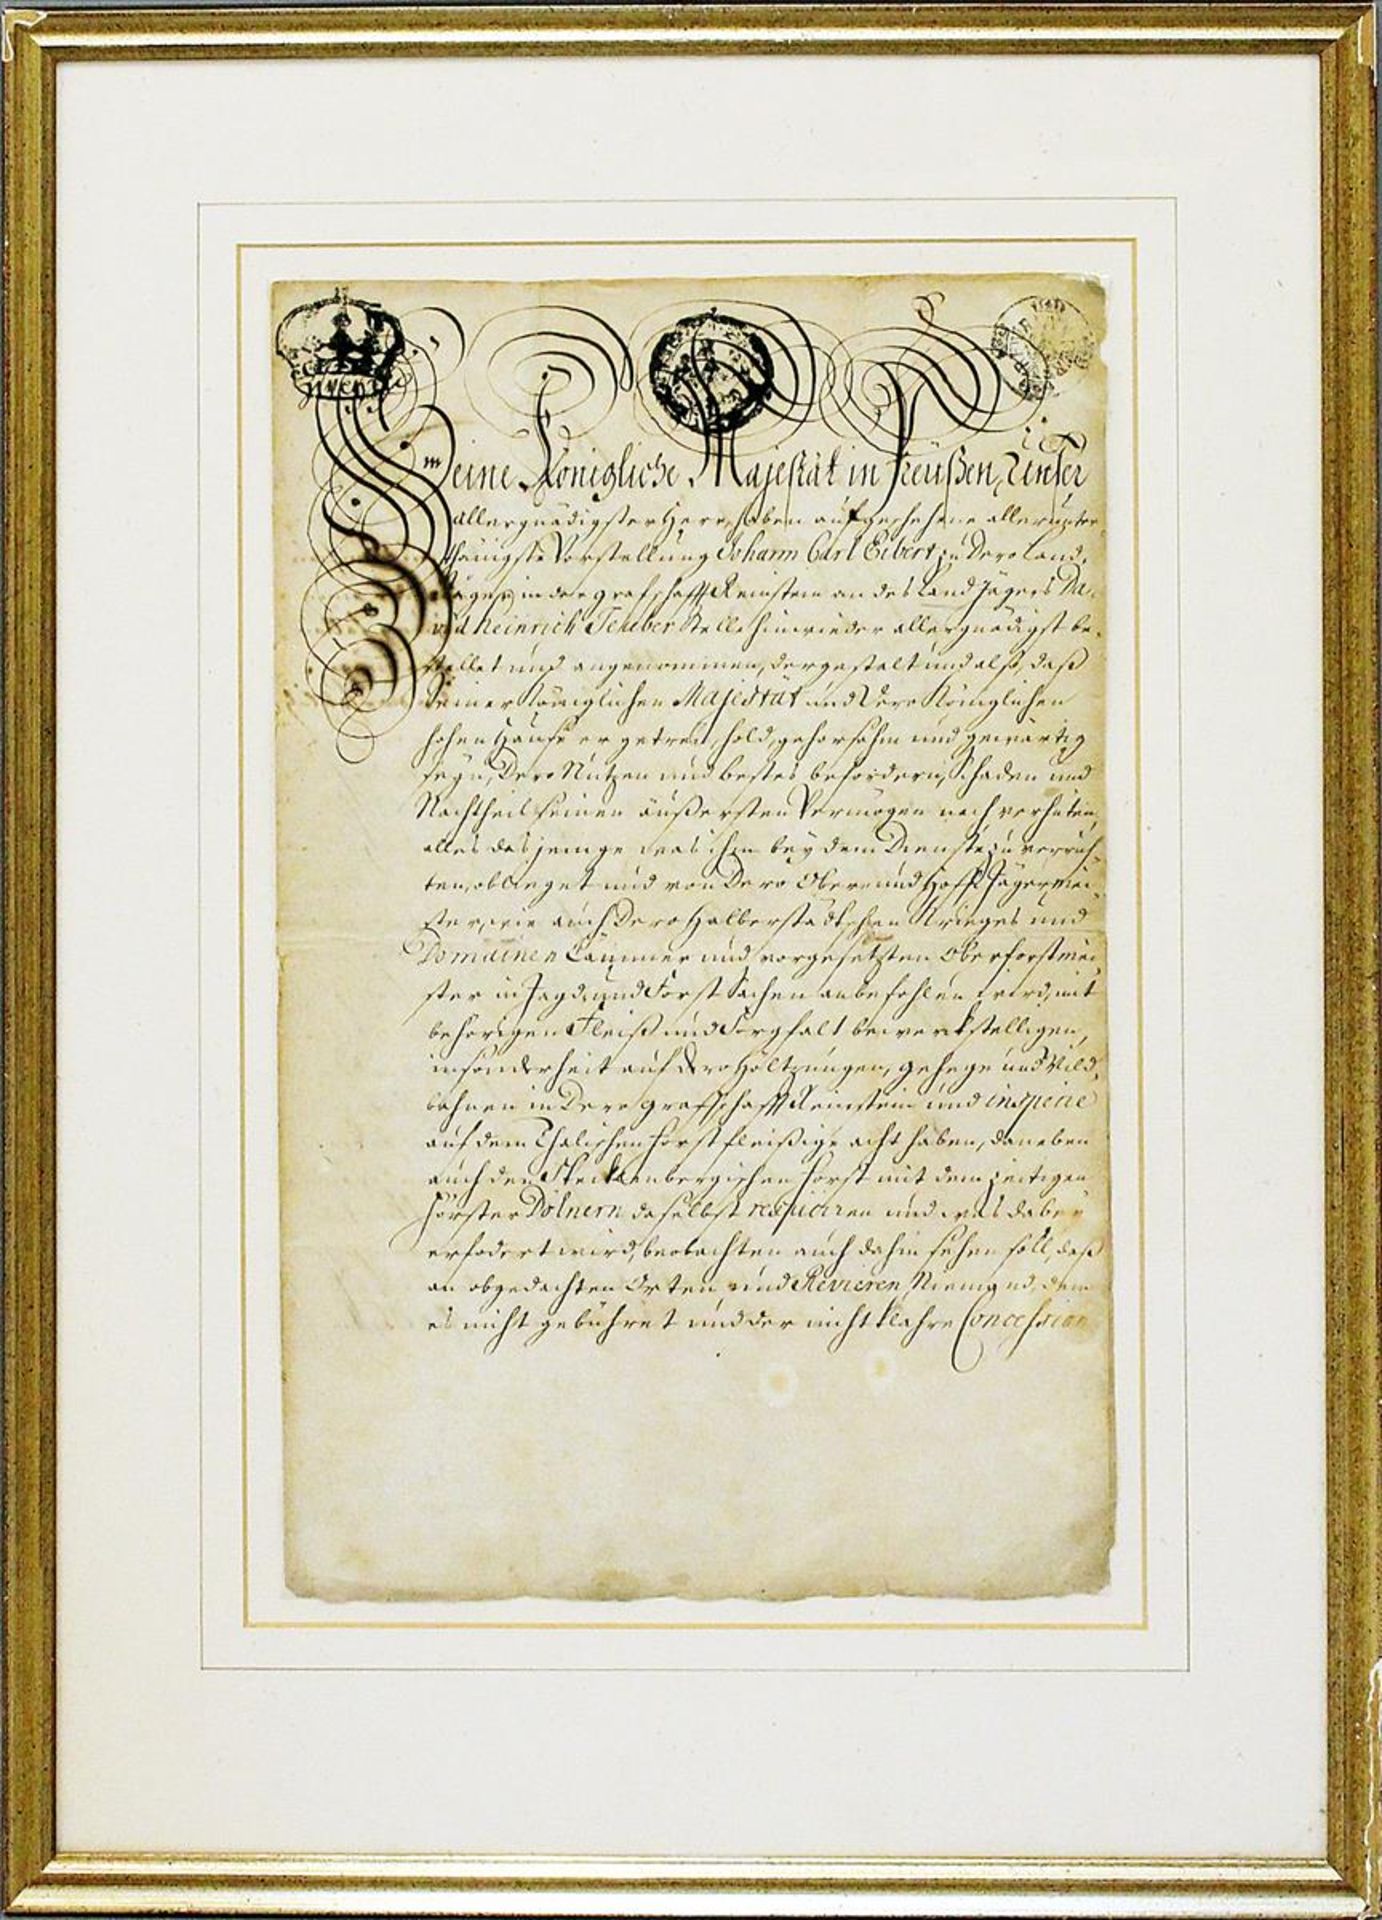 Seine Königliche Majestät in Preußen, Unser
allergnädigster Herr, haben auf geschehene allerunter-
thänigste Vorstellung Johann Carl Eibert zu Dero Land-
Jäger in der Grafschafft Reinstein an des Land Jägers Da-
vid Heinrich Stelle hinwieder allergnädigst be-
stellet und angenommen, dergestalt und also, daß
Seiner Königlichen Majestät und Dero Königlichen
hohen Hause er getreu, hold, gehorsahm und gewärtig
seyn, Dero Nutzen und bestes befördern, Schaden und
Nachtheil seinen äußersten Vermögen nach verhüten,
alles das jenige was ihm bey dem Dienste zu verrich-
ten, oblieget und von Dero Ober- und Hoff-Jägermei-
ster, wie auch Dero Halberstädtschen Krieges und
Domainen Cammer und vorgesetzten Oberforstmei-
ster in Jagd- und Forst Sachen anbefohlen wird, mit
behörigen Fleiß und Sorgfalt bewerckstelligen,
insonderheit auf Dero Höltzungen, Gehege und Wild-
bahnen in Dero Grafschafft Reinstein und in specie
auf dem Thalischen Forst fleißige acht haben, daneben
auch den Steckenbergischen Forst mit dem zeitigen
Förster Dölnern daselbst respiciren und was dabey
erfodert wird, beobachten auch dahin sehen soll, daß
an obgedachten Orten und Revieren Niemand, dem
es nicht gebühret und der nicht klahre Concession